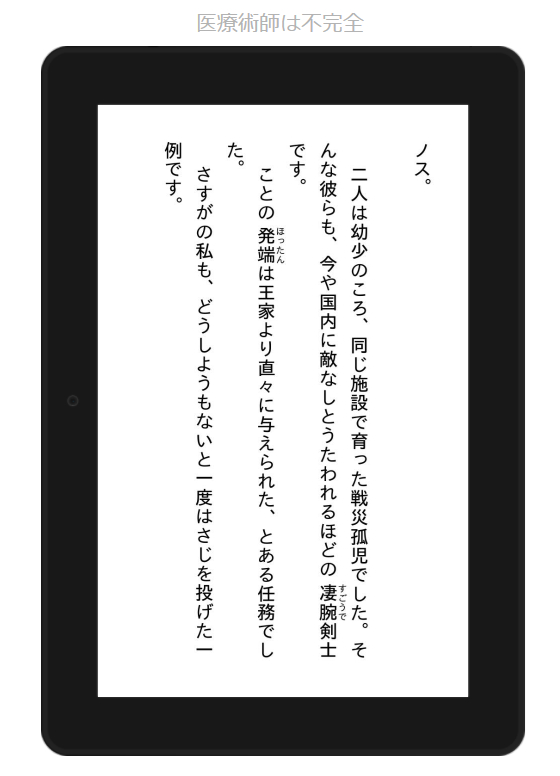 医療術師は不完全
ノス。
　二人は幼少のころ、同じ施設で育った戦災孤児でした。そ
んな彼らも、今や国内に敵なしとうたわれるほどの凄腕剣士
です。
　ことの発端は王家より直々に与えられた、とある任務でし
た。
　さすがの私も、どうしようもないと一度はさじを投げた一
例です。
すごうで
ほったん